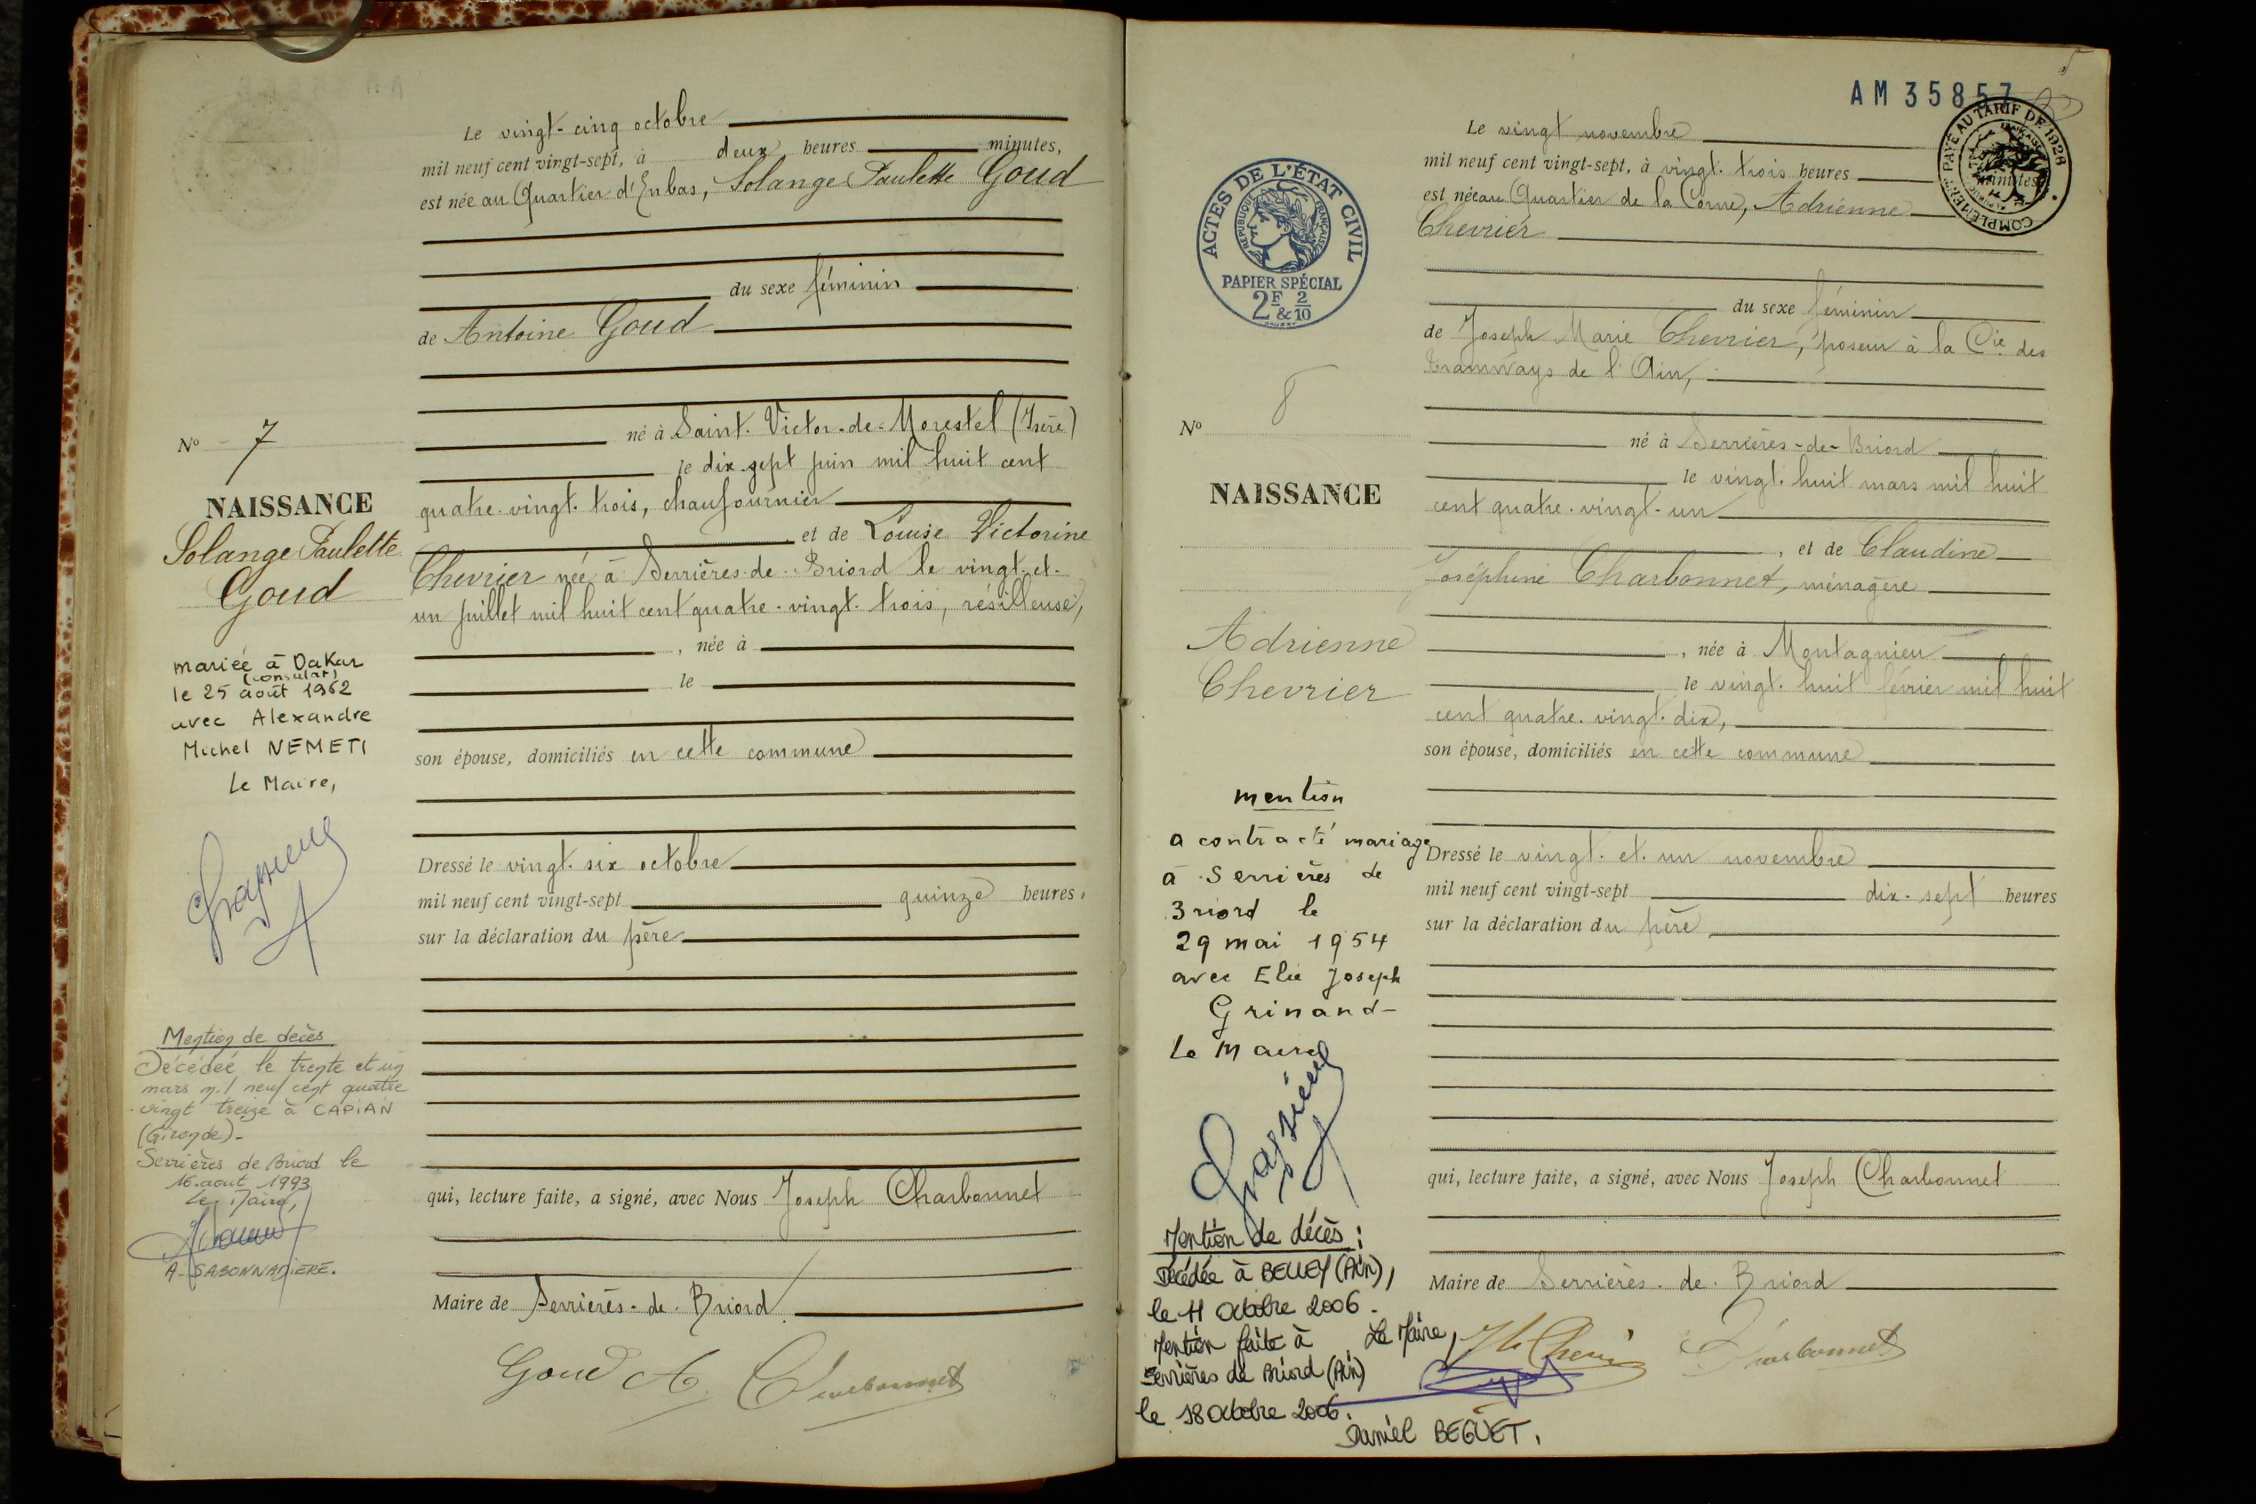 Le vingt-cinq octobre
mil neuf cent vingt-sept, à deux heures minutes,
est née au Quartier d'Enbas, Solange Paulette Goud
du sexe féminin
de Antoine Goud
né à Saint-Victor-de-Morestel (Isère)
le dix-sept juin mil huit cent
quatre-vingt-trois, chaufournier
et de Louise Victorine
Chevrier née à Serrières-de-Briord le vingt-et-
un juillet mil huit cent quatre-vingt-trois, résilleuse,
, née à
le
son épouse, domiciliés en cette commune
Dressé le vingt-six octobre
mil neuf cent vingt-sept quinze heures,
sur la déclaration du père
qui, lecture faite, a signé, avec Nous Joseph Charbonnet
Maire de Serrières-de-Briord
Goud A. Charbonnet
No 7
NAISSANCE
Solange Paulette
Goud
mariée à Dakar
(consulat)
le 25 août 1962
avec Alexandre
Michel NEMETI
Le Maire,
Mention de décès
Décédée le trente et un
mars mil neuf cent quatre
vingt treize à CAPIAN
(Gironde)-
Serrières de Briord le
16 août 1993
Le Maire,
A. SABONNADIERE.
AM 35857
COMPLÉMENT PAYÉ AU TARIF DE 1926
ACTES DE L'ÉTAT CIVIL
RÉPUBLIQUE FRANÇAISE
PAPIER SPÉCIAL
2F & 2/10
Le vingt novembre
mil neuf cent vingt-sept, à vingt-trois heures minutes
est née au Quartier de la Corne, Adrienne
Chevrier
du sexe féminin
de Joseph Marie Chevrier, poseur à la Cie des
tramways de l'Ain,
né à Serrières-de-Briord
le vingt-huit mars mil huit
cent quatre-vingt-un
, et de Claudine
Joséphine Charbonnet, ménagère
, née à Montagnieu
le vingt-huit février mil huit
cent quatre-vingt-dix,
son épouse, domiciliés en cette commune
Dressé le vingt-et-un novembre
mil neuf cent vingt-sept dix-sept heures
sur la déclaration du père
qui, lecture faite, a signé, avec Nous Joseph Charbonnet
Maire de Serrières-de-Briord
Charbonnet
No 8
NAISSANCE
Adrienne
Chevrier
mention
a contracté mariage
à Serrières de
Briord le
29 mai 1954
avec Elie Joseph
Grinand-
Le Maire
Mention de décès :
Décédée à BELLEY (Ain),
le 11 Octobre 2006.
Mention faite à Le Maire,
Serrières de Briord (Ain)
le 18 Octobre 2006.
Daniel BEGUET.